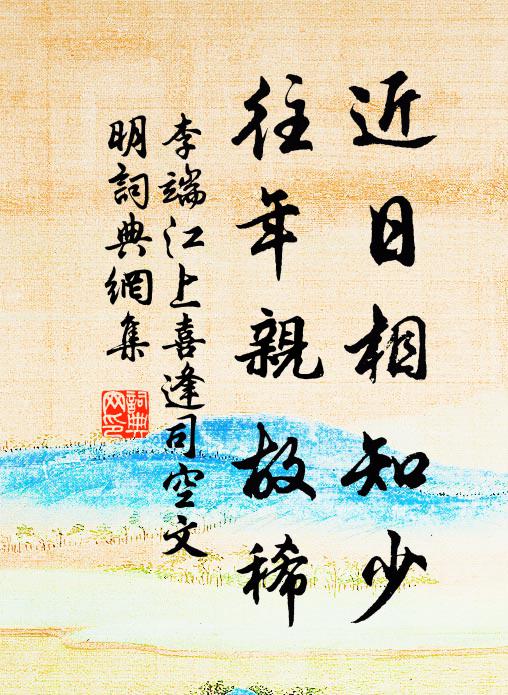 近日相知少
往年親故稀
李端江上喜逢司空文
明詞典網集
詞典
網印